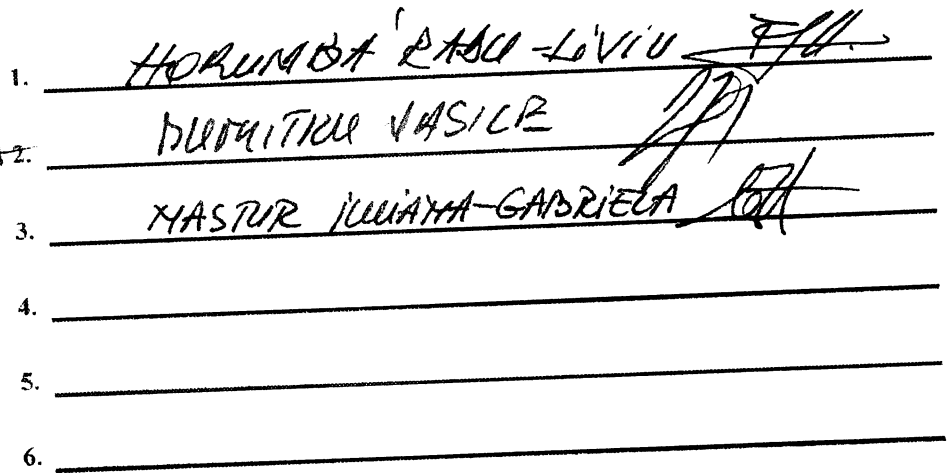 1. HORUMBĂ RADU-LIVIU
2. DUMITRU VASILE
3. MASTUR IULIANA-GABRIELA
4.
5.
6.